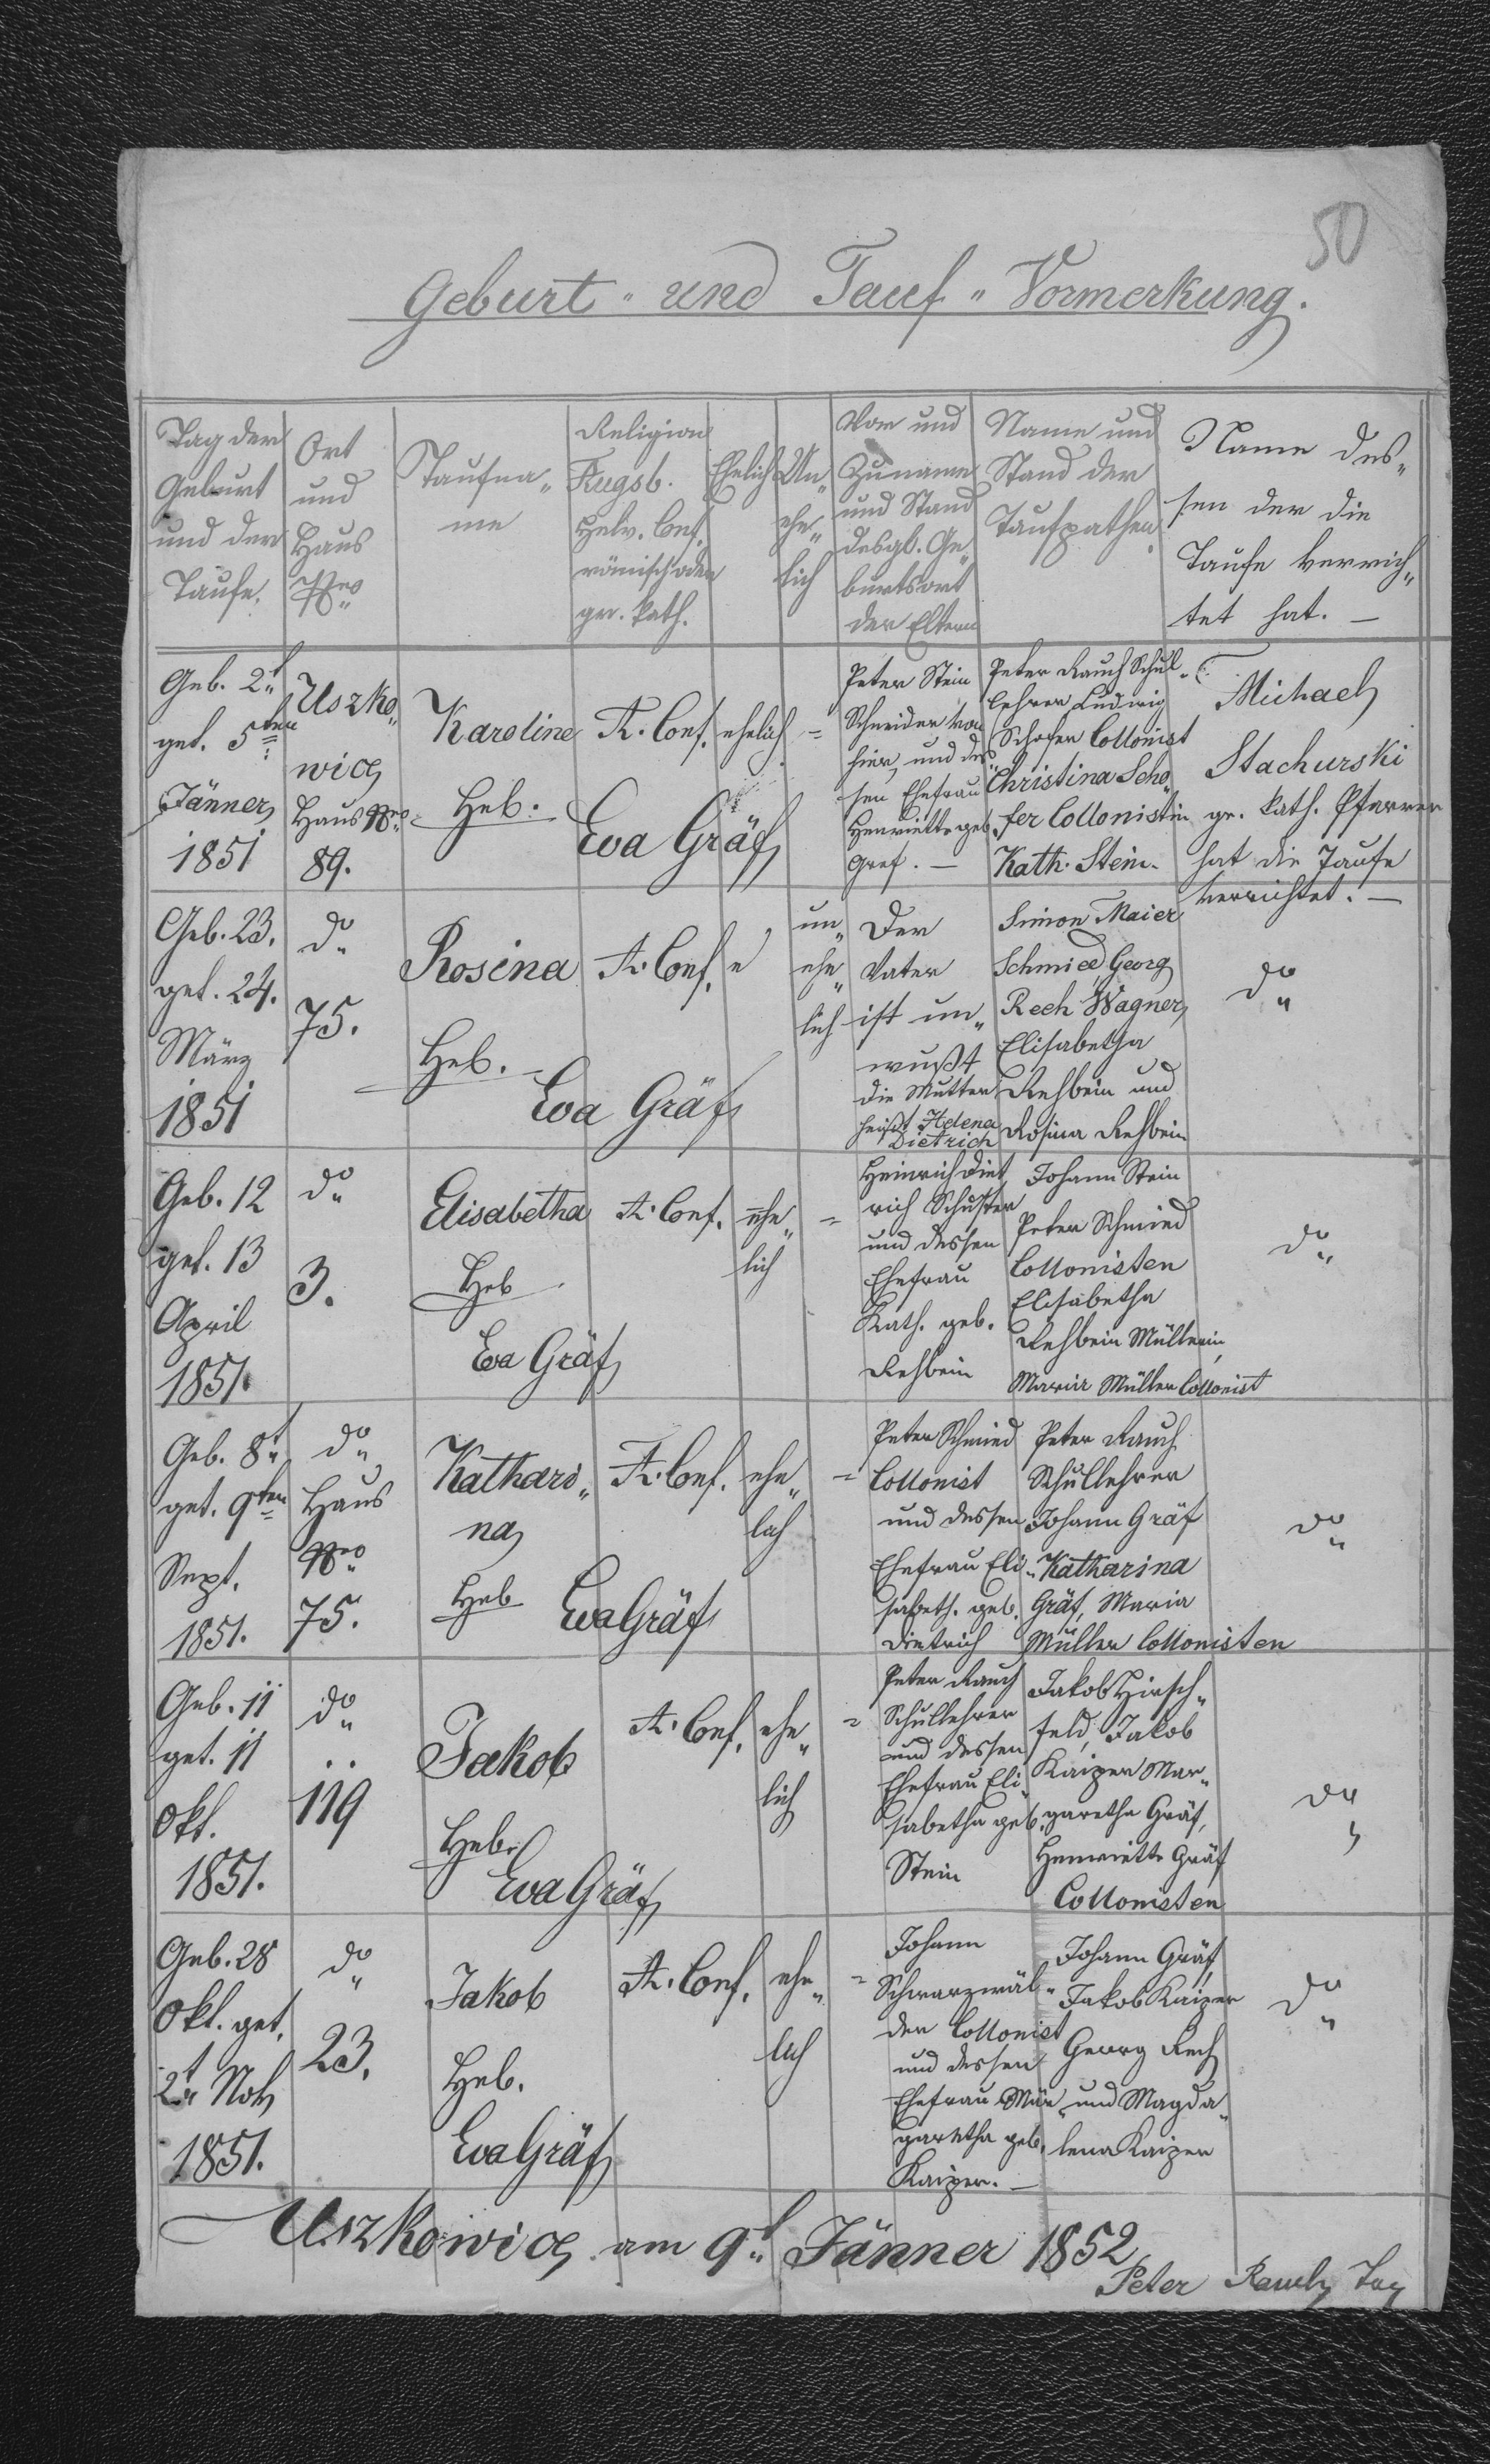 50
Geburt- und Tauf- Vormerkung.
Tag der
Geburt
und der
Taufe.
Ort
und
Haus
Nro
Taufna„
me
Religion
Augsb.
Helv. Conf.
römisch oder
gr. kath.
Ehelich
Un„
ehe„
lich
Vor und
Zuname
und Stand
desgl. Ge„
burtsort
der Eltern
Name und
Stand der
Taufpathen
Name des„
sen der die
Taufe verrich„
tet hat. —
Geb. 2t
get. 5ten
Jänner
1851
Uszko„
wice
Haus Nro
89.
Karoline
Heb.
Eva Gräf
A. Conf.
ehelich
Peter Stein
Schneider von
hier, und des„
sen Ehefrau
Henriette geb.
Gref. —
Peter Rauch Schul„
lehrer Ludwig
Schofer Collonist
Christina Scho„
fer Collonistin
Kath. Stein.
Michael
Stachurski
gr. kath. Pfarrer
hat die Taufe
verrichtet. —
Geb. 23.
get. 24.
März
1851
do
75.
Rosina
Heb.
Eva Gräf
A. Conf.
un„
ehe„
lich
Der
Vater
ist un„
wußt
die Mutter
heißt Helena
Dietrich
Simon Maier
Schmied Georg
Rech Wagner
Elisabetha
Rehbein und
Rosina Rehbein
do
Geb. 12
get. 13
April
1851.
do
3.
Elisabetha
Heb
Eva Gräf
A. Conf.
ehe„
lich
Heinrich Diet
rich Schuster
und dessen
Ehefrau
Kath. geb.
Rehbein
Johann Stein
Peter Schmied
Collonisten
Elisabetha
Rehbein Müllerin
Maria Müller Collonist
do
Geb. 8t
get. 9ten
Sept.
1851.
do
Haus
Nro
75.
Kathari„
na
Heb
Eva Gräf
A. Conf.
ehe„
lich
Peter Schmied
Collonist
und dessen
Ehefrau Eli„
sabeth. geb.
Dietrich
Peter Rauch
Schullehrer
Johann Gräf
Katharina
Gräf, Maria
Müller Collonisten
do
Geb. 11
get. 11
Okt.
1851.
do
119
Jakob
Heb.
Eva Gräf
A. Conf.
ehe„
lich
Peter Rauch
Schullehrer
und dessen
Ehefrau Eli„
sabetha geb.
Stein
Jakob Hirsch„
feld, Jakob
Kaizer Mar„
garetha Gräf,
Henriette Gräf
Collonisten
do
Geb. 28
Okt. get.
2t Nov
1851.
do
23.
Jakob
Heb.
Eva Gräf
A. Conf.
ehe„
lich
Johann
Schwarzwäl„
der Collonist
und dessen
Ehefrau Mar„
garetha geb.
Kaizer. —
Johann Gräf
Jakob Kaizer
Georg Rech
und Magda„
lena Kaizer
do
Uszkowice am 9t Jänner 1852
Peter Rauch